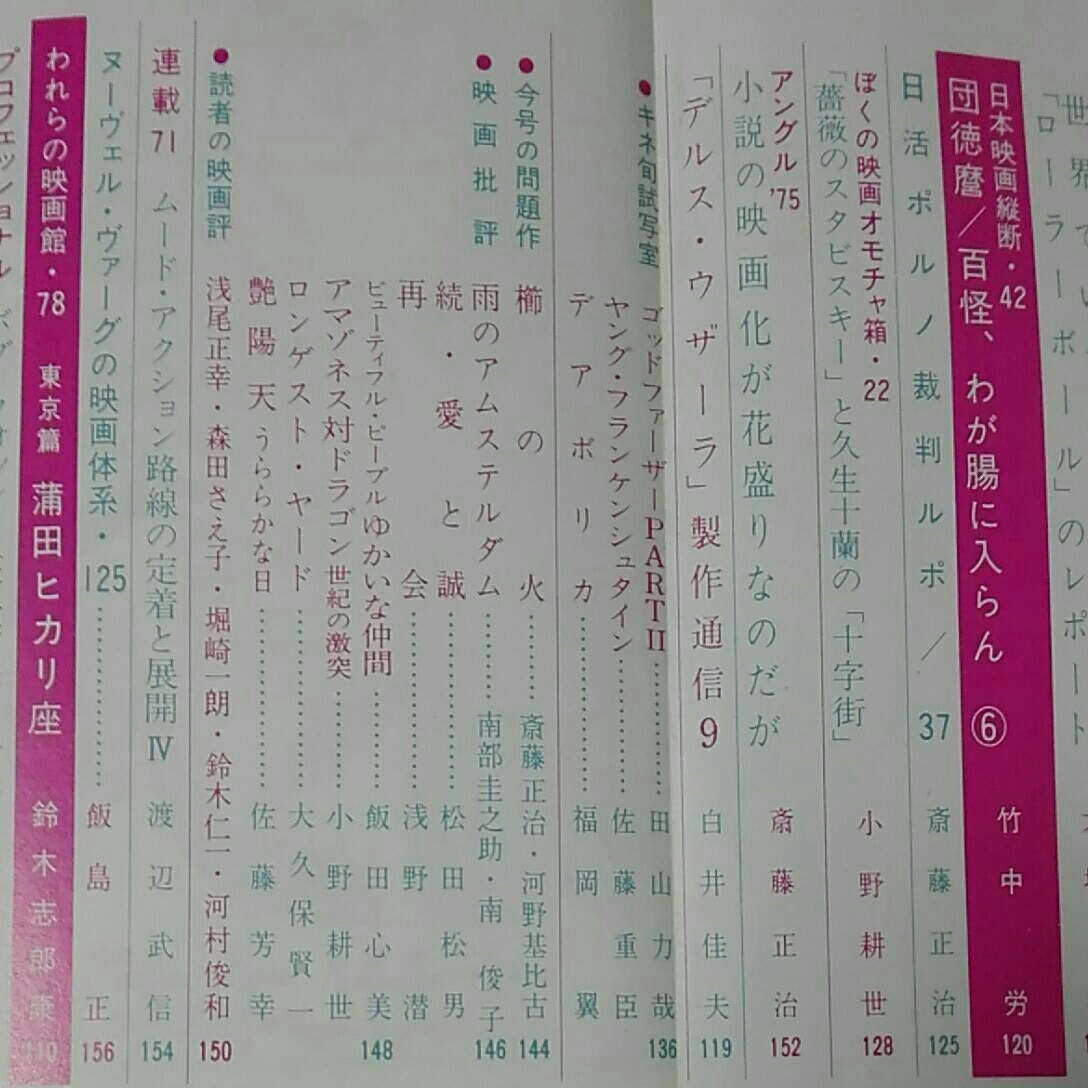 「ローラーボール」のレポート
日本映画縦断・42
団徳麿／百怪、わが腸に入らん ⑥ 竹中 労 120
日活ポルノ裁判ルポ／37 斎藤正治 125
ぼくの映画オモチャ箱・22
「薔薇のスタビスキー」と久生十蘭の「十字街」 小野耕世 128
アングル '75
小説の映画化が花盛りなのだが 斎藤正治 152
「デルス・ウザーラ」製作通信9 白井佳夫 119
●キネ旬試写室
ゴッドファーザーPARTⅡ 田山力哉 136
ヤング・フランケンシュタイン 佐藤重臣
デアボリカ 福岡翼
●今号の問題作
櫛の火 斎藤正治・河野基比古 144
●映画批評
雨のアムステルダム 南部圭之助・南 俊子 146
続・愛と誠 松田松男
再会 浅野潜
ビューティフル・ピープルゆかいな仲間 飯田心美 148
アマゾネス対ドラゴン世紀の激突 小野耕世
ロンゲスト・ヤード 大久保賢一
艶陽天うららかな日 佐藤芳幸
●読者の映画評
浅尾正幸・森田さえ子・堀崎一朗・鈴木仁一・河村俊和 150
連載71 ムード・アクション路線の定着と展開Ⅳ 渡辺武信 154
ヌーヴェル・ヴァーグの映画体系・125 飯島 正 156
われらの映画館・78 東京篇 蒲田ヒカリ座 鈴木志郎康 110
プロフェッショナル